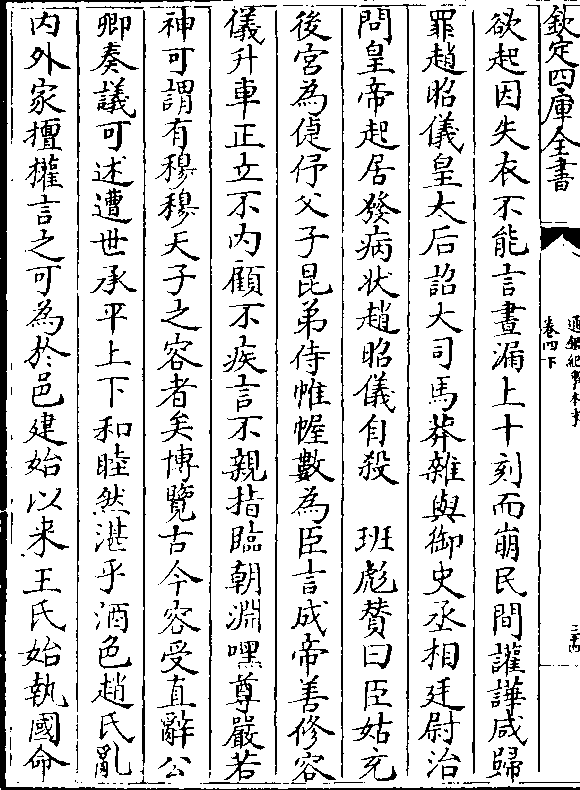 欽定四庫全書
通鑑紀事本末
卷四下
欲起因失衣不能言晝漏上十刻而崩民間讙譁咸歸
罪趙昭儀皇太后詔大司馬莽雜與御史丞相廷尉治
問皇帝起居發病狀趙昭儀自殺　班彪贊曰臣姑充
後宮為倢伃父子昆弟侍帷幄數為臣言成帝善修容
儀升車正立不內顧不疾言不親指臨朝淵嘿尊嚴若
神可謂有穆穆天子之容者矣博覽古今容受直辭公
卿奏議可述遭世承平上下和睦然湛乎酒色趙氏亂
內外家擅權言之可為於邑建始以来王氏始執國命